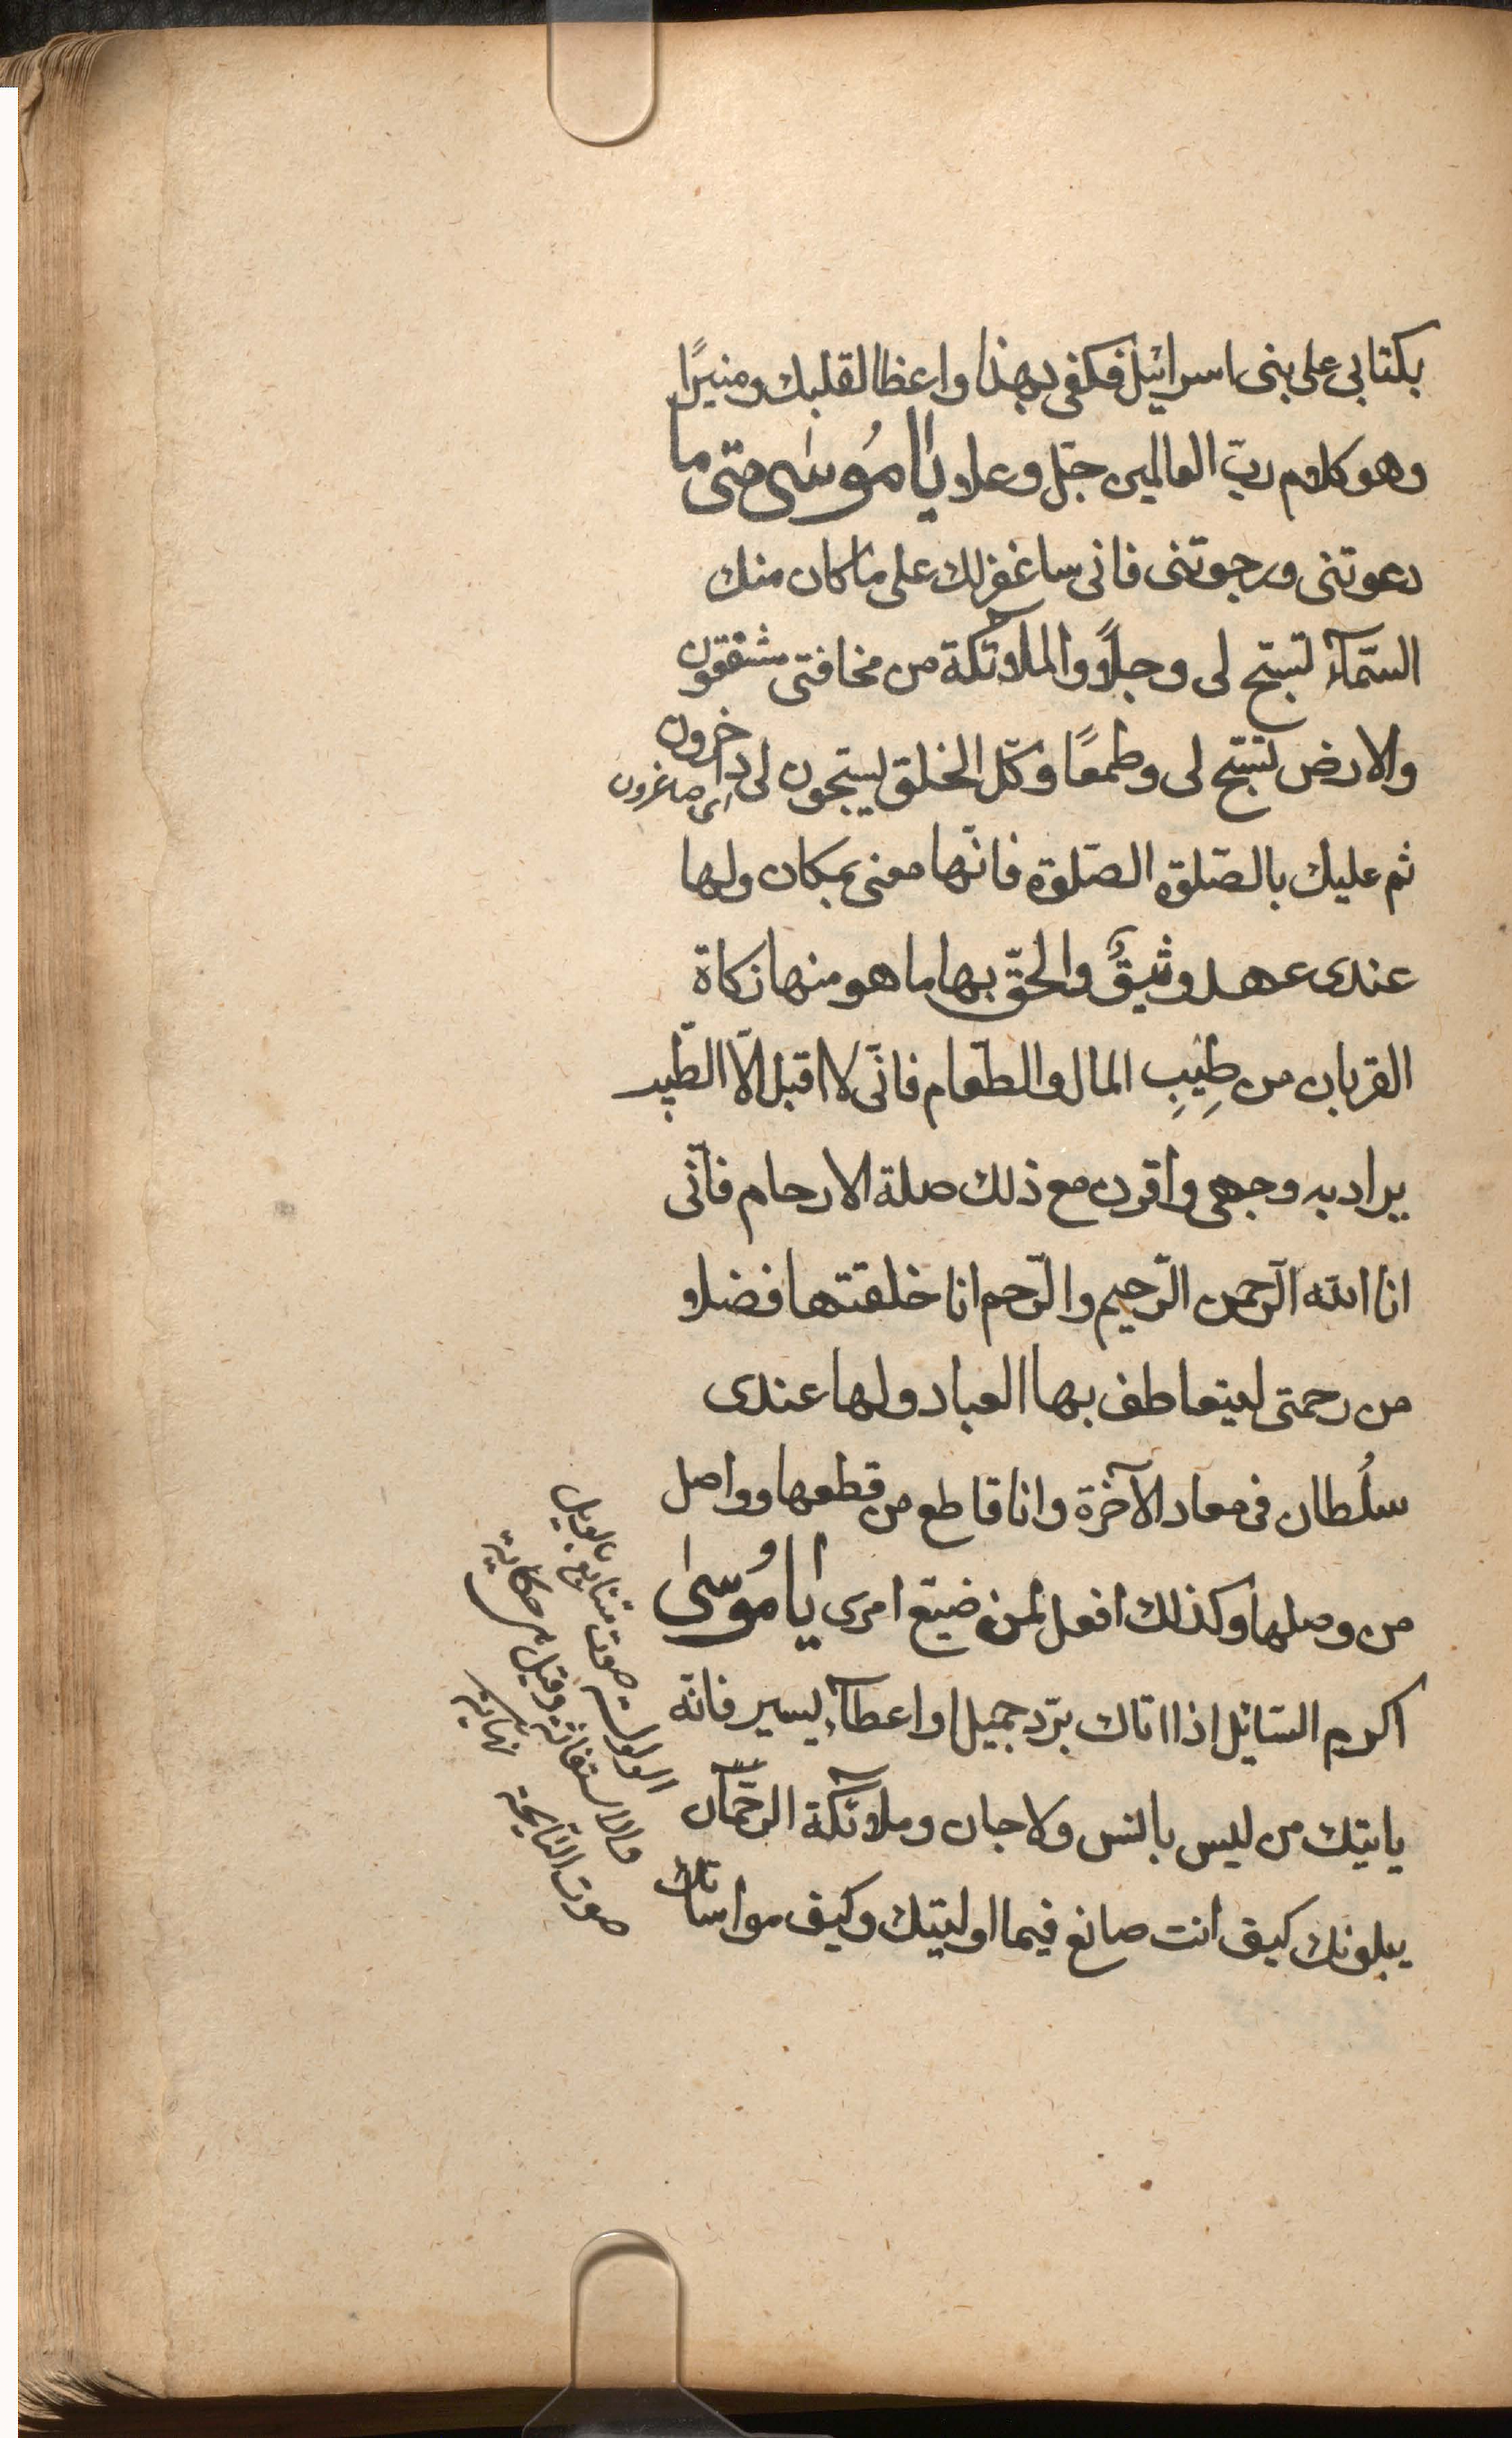 بكتابى على بنى اسرائيل فكفى بهذا واعظا لقلبك ومنيرًا
وهو كلام ربّ العالمين جلّ وعلا يا مُوسٰى متى ما
دعوتنى ورجوتنى فانى ساغفر لك على ما كان منك
السّمآء تسبّح لى وجلًا والملآئكة من مخافتى مشفقون
والارض تسبّح لى وطمعًا وكلّ الخلق يسبّحون لى داخرون
اى صاغرون
ثم عليك بالصّلوة الصّلوة فانّها منى بمكان ولها
عندى عهد وثيقٌ والحقّ بها ما هو منها زكاة
القربان من طِيبِ المال والطّعام فانّى لا اقبل الّا الطّيب
يراد به وجهى واقرن مع ذلك صلة الارحام فانّى
انا اللّه الرّحمن الرّحيم والرّحم انا خلقتها فضلا
من رحمتى ليتعاطف بها العباد ولها عندى
سلُطان فى معاد الآخرة وانا قاطع من قطعها وواصل
من وصلها وكذلك افعل لمن ضيّع امرى يا مُوسٰى
اكرم السّائل اذا اتاك بردّ جميل او اعطآء يسير فانّه
ياتيك من ليس بانس ولا جان وملآئكة الرّحمٰن
يبلونك كيف انت صانع فيما اوليتك وكيف مواساتك
الولولة صوت متتابع بالويل
والاستغاثة وقيل حكاية
صوت النّايحة نهاية